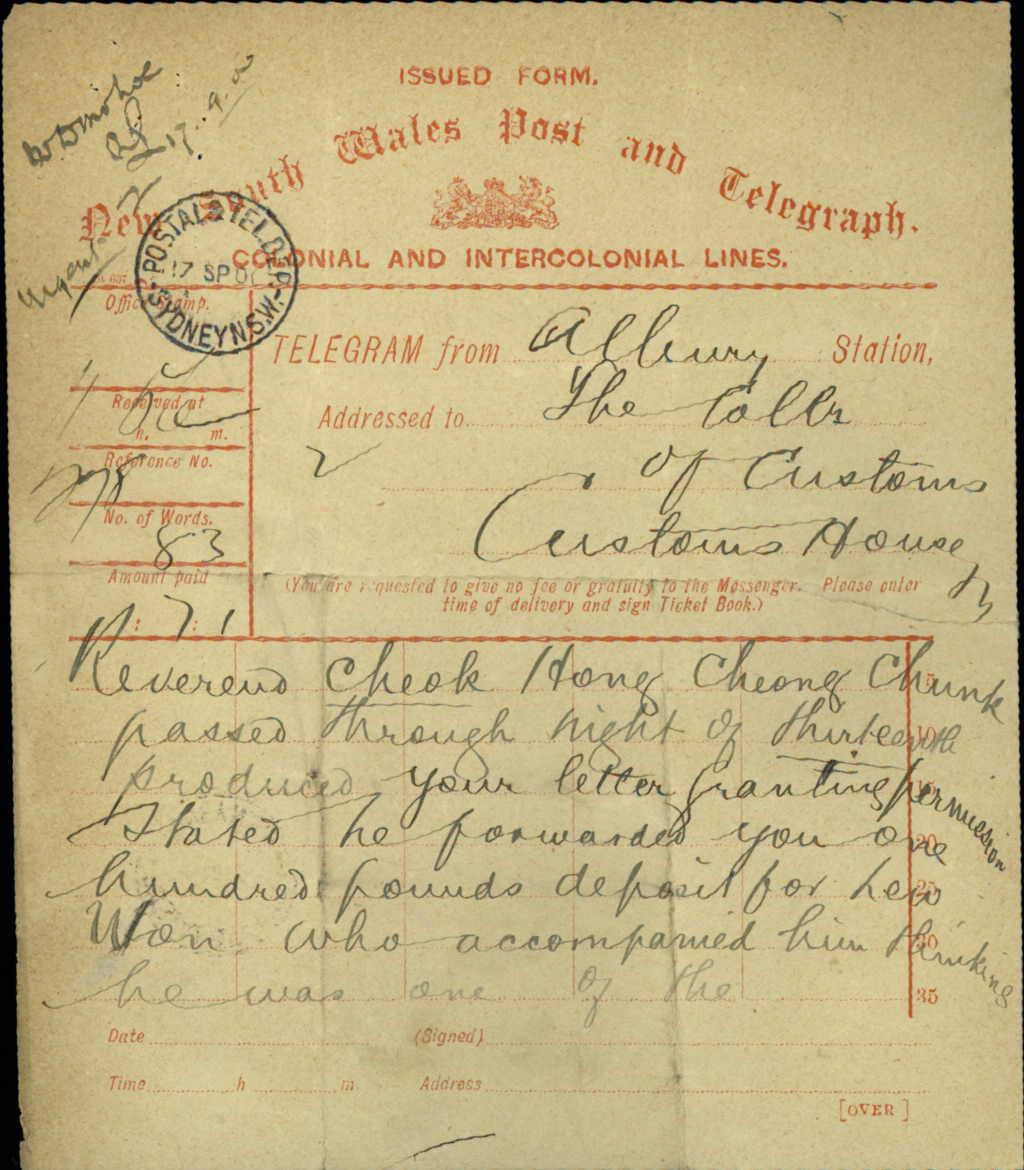 ISSUED FORM.
New South Wales Post and Telegraph.
COLONIAL AND INTERCOLONIAL LINES.
17. 9. 01
Urgent
POSTAL & TEL. DEP.
17 SP 01
SYDNEY N.S.W.
Office Stamp.
TELEGRAM from Albury Station,
Received at
h. m.
Addressed to The Collr
Reference No.
of Customs
No. of Words.
83
Customs House
Amount paid
: 7 : 1
(You are requested to give no fee or gratuity to the Messenger. Please enter
time of delivery and sign Ticket Book.)
Reverend Cheok Hong Cheong Chunk 5
passed through night of thirteenth 10
produced your letter granting permission 15
Stated he forwarded you one 20
hundred pounds deposit for hew 25
Won who accompanied him thinking 30
he was one of the 35
Date (Signed)
Time h m. Address
[OVER]